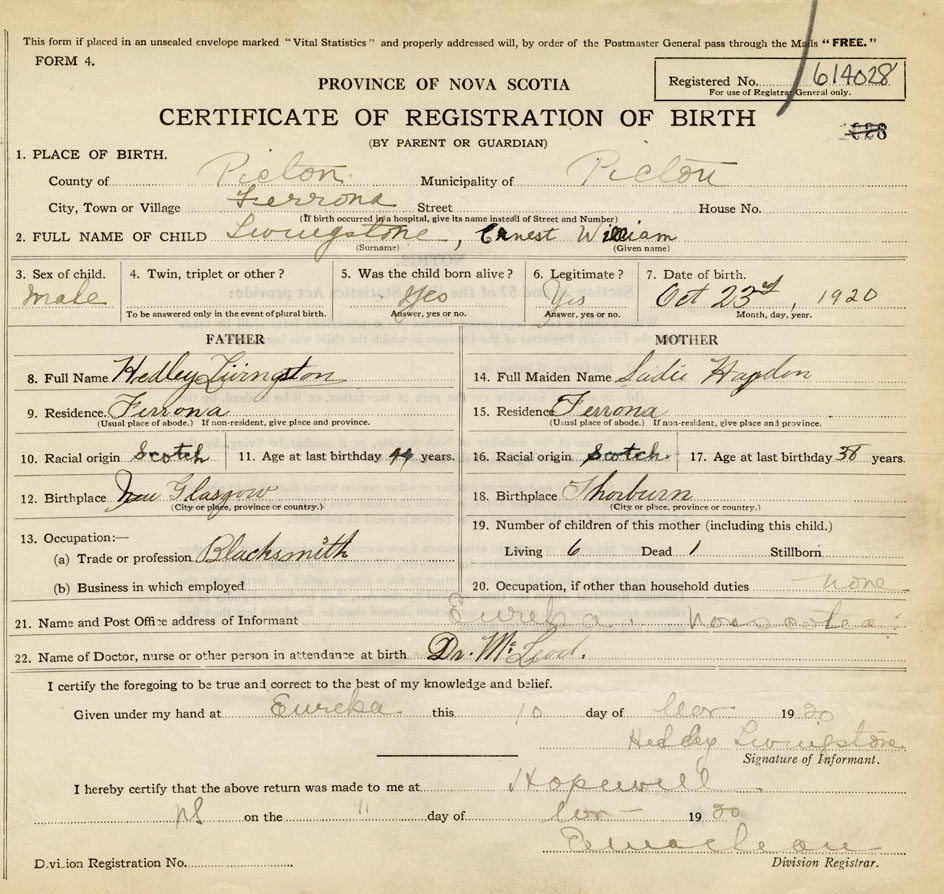 This form if placed in an unsealed envelope marked "Vital Statistics" and properly addressed will, by order of the Postmaster General pass through the Mails "FREE."
FORM 4.
PROVINCE OF NOVA SCOTIA
Registered No. 614028
For use of Registrar General only.
CERTIFICATE OF REGISTRATION OF BIRTH
(BY PARENT OR GUARDIAN)
1. PLACE OF BIRTH.
County of Pictou Municipality of Pictou
City, Town or Village Ferrona Street House No.
(If birth occurred in a hospital, give its name instead of Street and Number)
2. FULL NAME OF CHILD Livingstone, Ernest William
(Surname) (Given name)
3. Sex of child. 4. Twin, triplet or other? 5. Was the child born alive? 6. Legitimate? 7. Date of birth.
Male Yes Yes Oct 23rd, 1920
To be answered only in the event of plural birth. Answer, yes or no. Answer, yes or no. Month, day, year.
FATHER MOTHER
8. Full Name Hedley Livingston 14. Full Maiden Name Sadie Hayden
9. Residence. Ferrona 15. Residence Ferrona
(Usual place of abode.) If non-resident, give place and province. (Usual place of abode.) If non-resident, give place and province.
10. Racial origin Scotch 11. Age at last birthday 44 years. 16. Racial origin Scotch. 17. Age at last birthday years.
12. Birthplace New Glasgow 18. Birthplace Thorburn
(City or place, province or country.) (City or place, province or country.)
13. Occupation:— 19. Number of children of this mother (including this child.)
(a) Trade or profession Blacksmith Living 6 Dead 1 Stillborn
(b) Business in which employed 20. Occupation, if other than household duties none
21. Name and Post Office address of Informant Eureka. Nova Scotia
22. Name of Doctor, nurse or other person in attendance at birth Dr. McLeod.
I certify the foregoing to be true and correct to the best of my knowledge and belief.
Given under my hand at Eureka this 10 day of Nov 1920
Hedley Livingstone
Signature of Informant.
I hereby certify that the above return was made to me at Hopewell
NS on the 11 day of Nov 1920
Division Registration No. Division Registrar.